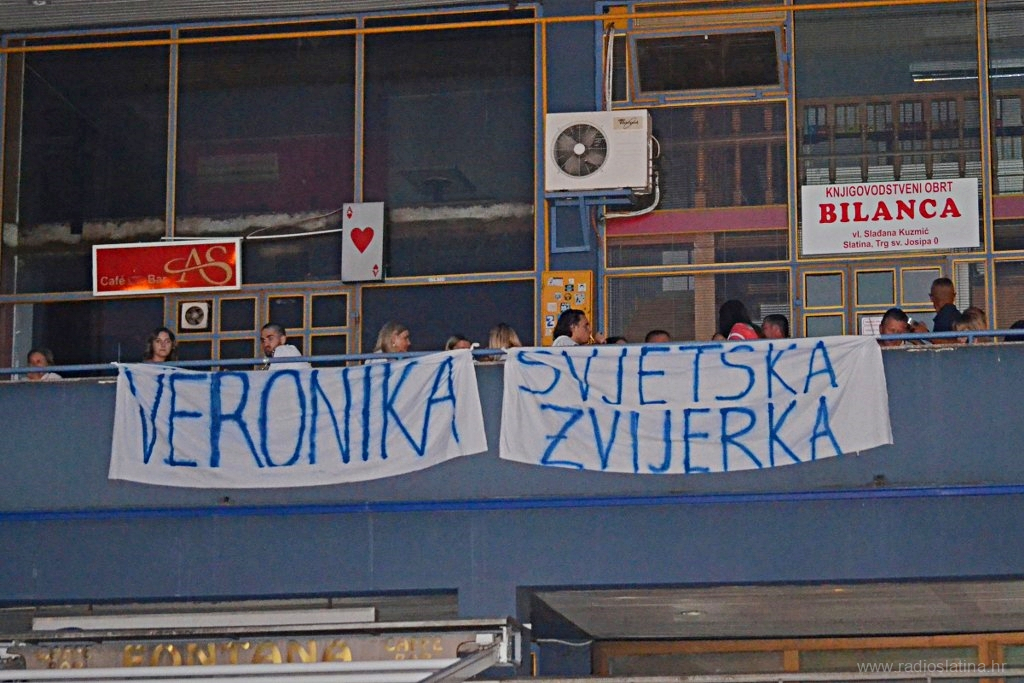 KNJIGOVODSTVENI OBRT
BILANCA
vl. Slađana Kuzmić
Slatina, Trg sv. Josipa 0
Café Bar AS
VERONIKA
SVJETSKA
ZVIJERKA
FONTANA
www.radioslatina.hr